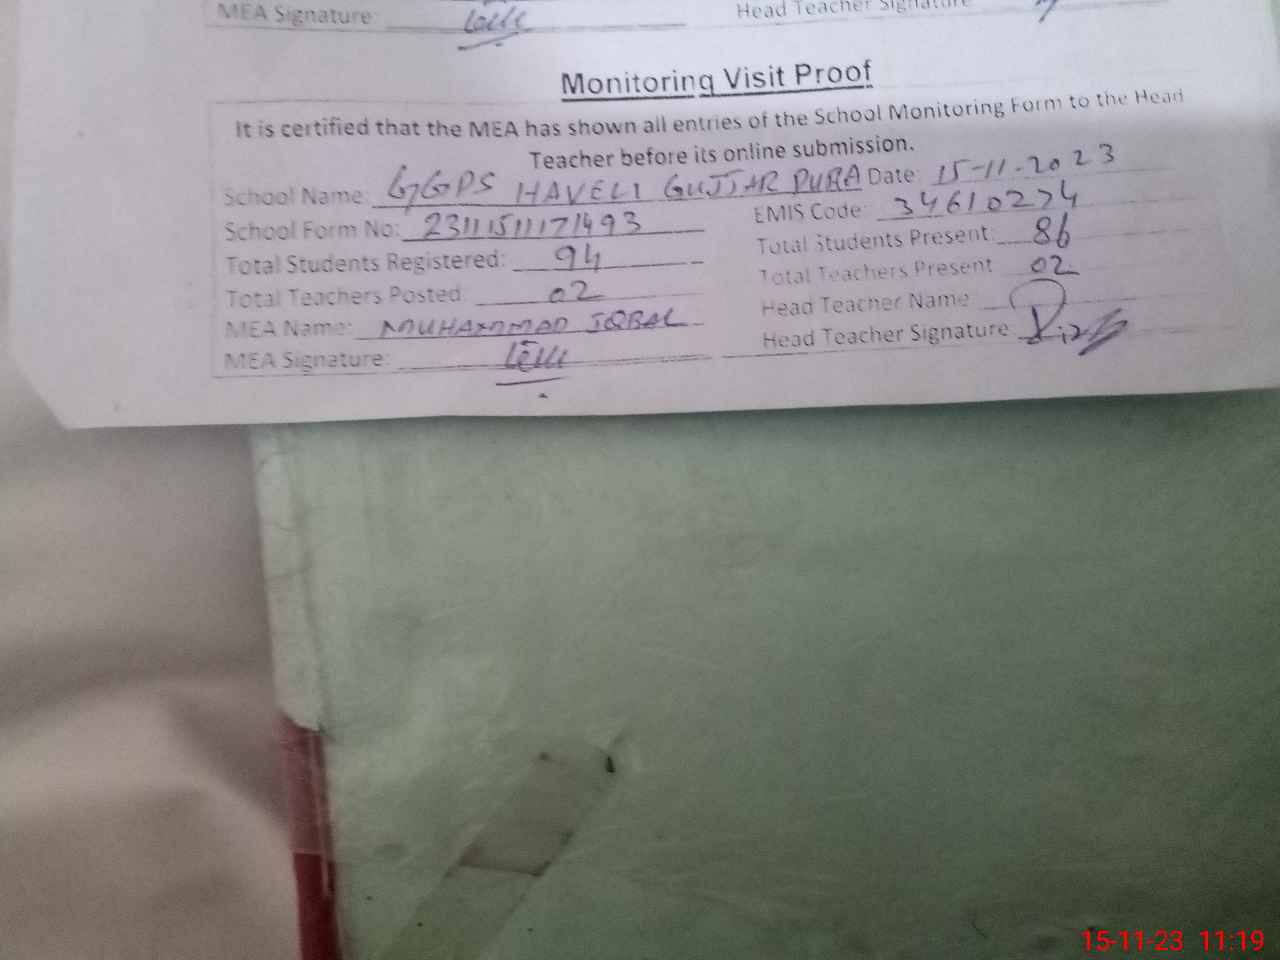 MEA Signature: Head Teacher Signature
Monitoring Visit Proof
It is certified that the MEA has shown all entries of the School Monitoring Form to the Head
Teacher before its online submission.
School Name: GGPS HAVELI GUJJAR PURA Date: 15-11-2023
School Form No: 23111511171493 EMIS Code: 34610274
Total Students Registered: 94 Total Students Present: 86
Total Teachers Posted: 02 Total Teachers Present 02
MEA Name: MUHAMMAD IQBAL Head Teacher Name
MEA Signature: Head Teacher Signature
15-11-23 11:19